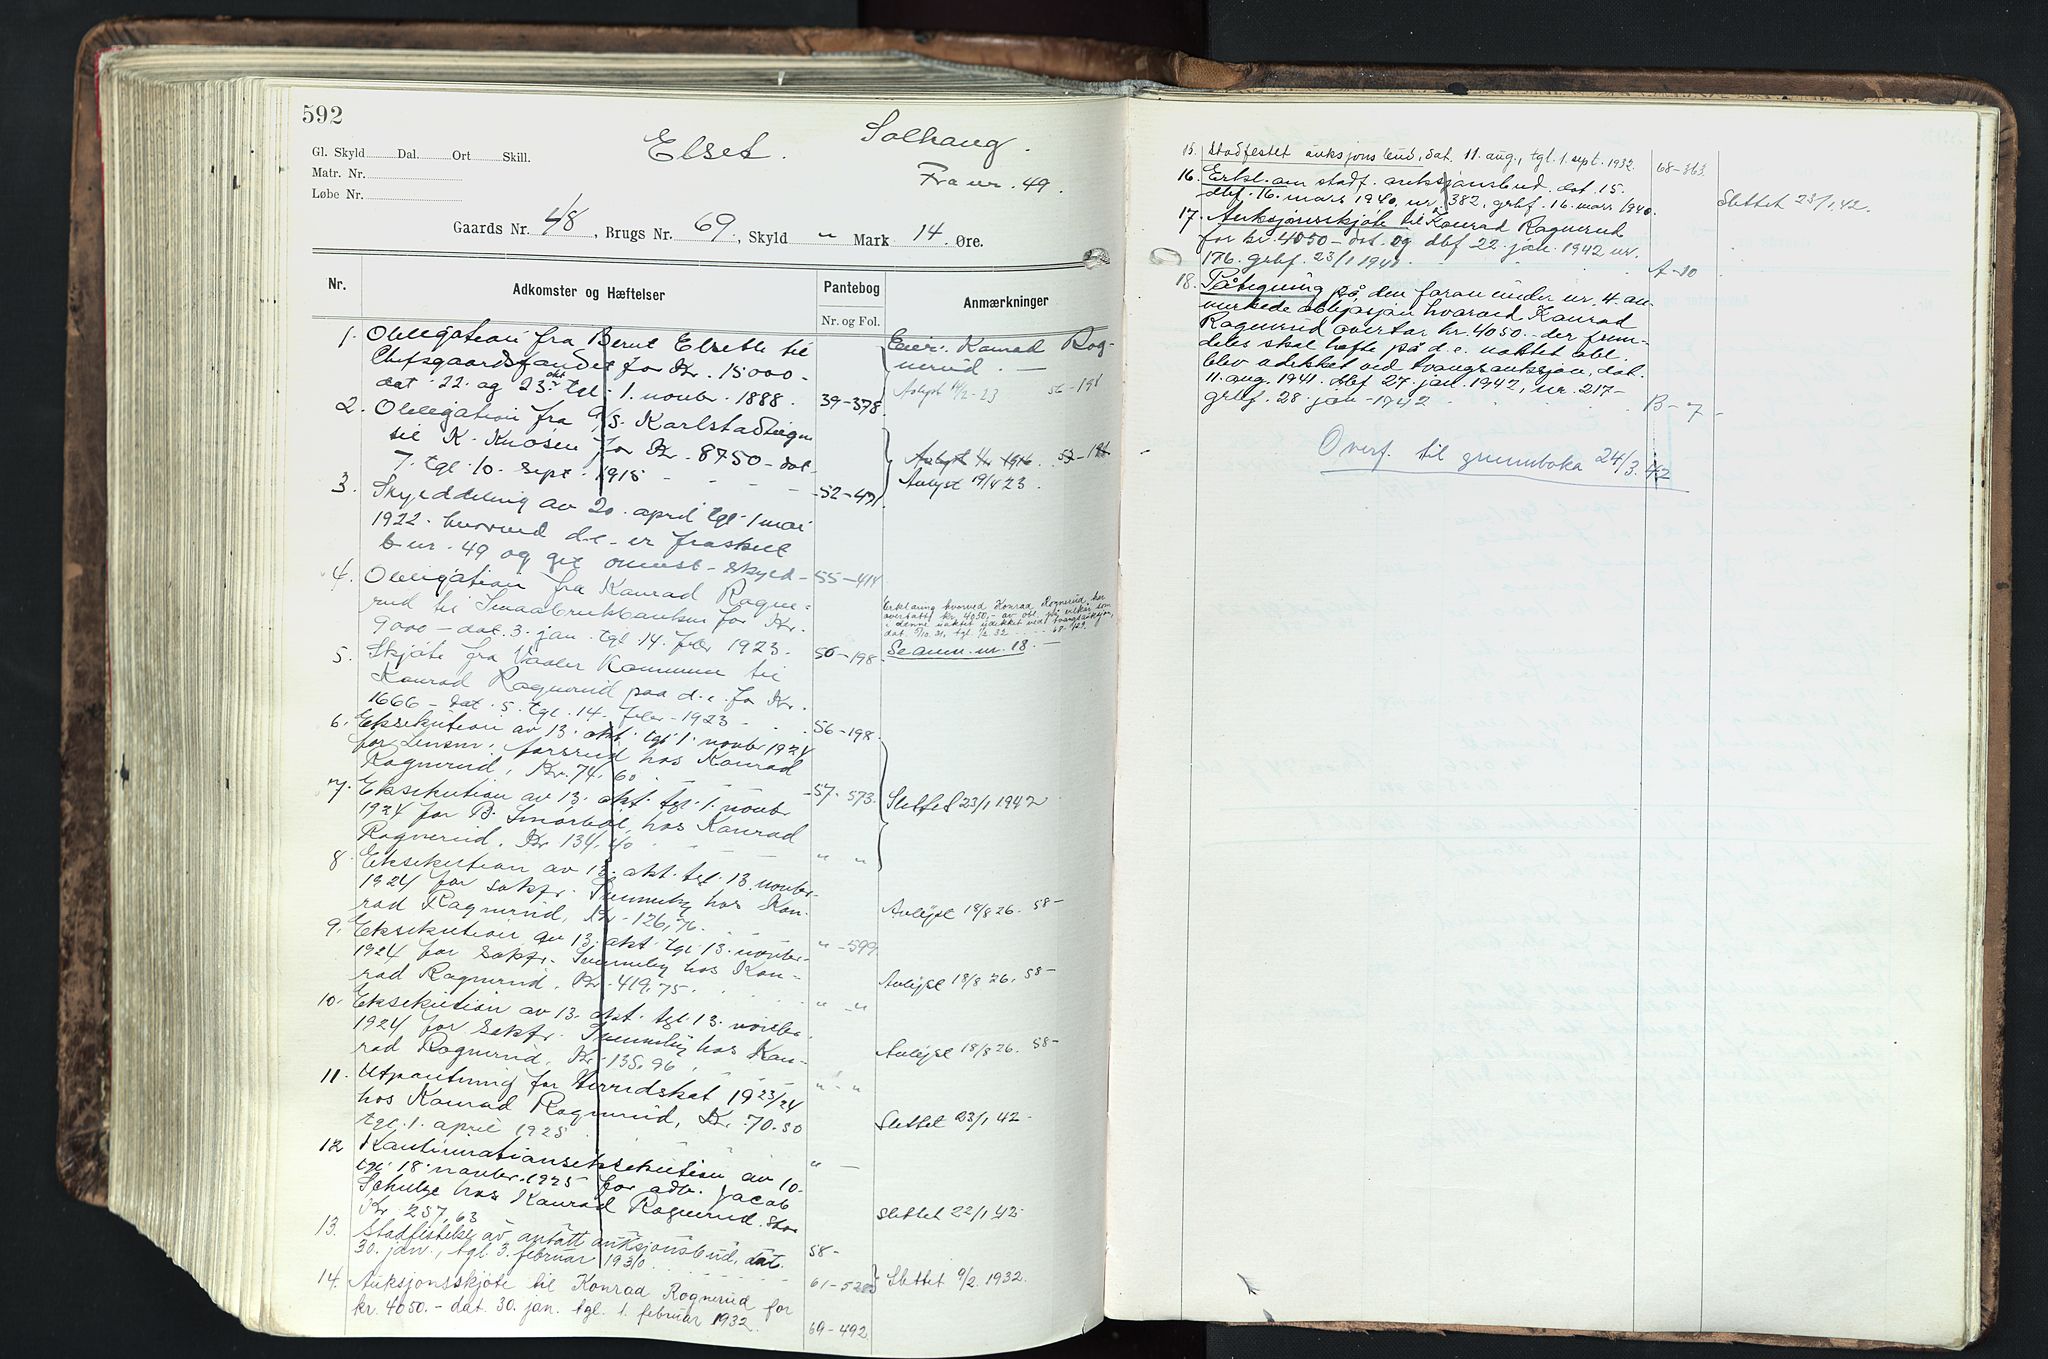 592
Gl. Skyld Dal. Ort Skill.
Matr. Nr.
Løbe Nr.
Elset.
Solhaug.
Fra nr. 49.
Gaards Nr. 48, Brugs Nr. 69, Skyld " Mark 14 Øre.
Nr. Adkomster og Hæftelser Pantebog Anmærkninger
Nr. og Fol.
1. Obligation fra Bernt Elseth til
Chefsgaardsfondet for Kr. 15000-
dat. 22. og 23. okt tgl. 1. novbr. 1888. 39-378
Eier: Konrad Rog-
nerud. —
Avlyst 14/2-23 56-198
2. Obligation fra A/S. Karlstadtegn
til K. Knosen for Kr. 8750- dat.
7. tgl. 10. sept. 1915 52-471
Avlyst 19/4 23.
3. Skylddeling av 20. april tgl. 1 mai
1922. hvorved d.e. er fraskilt
br. nr. 49 og git omenst. skyld- 55-414
4. Obligation fra Konrad Rogne-
rud til Smaabrukbanken for Kr.
9000- dat. 3. jan. tgl. 14. febr 1923. 56-198
Erklæring hvorved Konrad Rognerud har
overtatt kr. 4050,- av obl. på vilkår som
i denne uaktet udekket ved tvangsauksjon,
Se anm. nr. 18. —
5. Skjøte fra Vaaler Kommune til
Konrad Rognerud paa d.e. for Kr.
1666- dat. 5. tgl. 14. febr. 1923. 56-198
6. Eksekution av 13. okt. tgl. 1. novbr 1924
for Lensm. Forsrud hos Konrad
Rognerud, Kr. 74.60 57-573
7. Eksekution av 13. okt. tgl. 1. novbr
1924 for B. Smørbøl, hos Konrad
Rognerud. Kr 134,40 " "
Slettet 23/1 1942
8. Eksekution av 13. okt. tgl. 13. novbr-
1924 for sakfr. Svenneby hos Kon-
rad Rognerud, Kr. 126,76. " -599
Avlyst 18/8 26. 58-
9. Eksekution av 13. okt. tgl. 13. novbr-
1924 for Sakfr. Svenneby hos Kon-
rad Rognerud. Kr. 419,75. " "
Avlyst 18/8 26. 58-
10. Eksekution av 13. okt. tgl. 13. novbr.
1924 for Sakfr. Svenneby hos Kon-
rad Rognerud, Kr. 135,96 " - "
Avlyst 18/8 26. 58-
11. Utpantning for Herredskat 1923/24
hos Konrad Rognerud, Kr. 70.50
tgl. 1. april 1925 " —
Slettet 23/1 42-
12 Kontinuationseksekution av 10-
tgl. 18. novbr. 1925 for adv. Jacob
Schulze hos Konrad Rognerud. Stor
Kr. 257,63 58-
Slettet 22/1 42-
13. Stadfestelse av antatt auksjonsbud, dat.
30. jan., tgl. 3. februar 1930 61-520
14. Auksjonsskjøte til Konrad Rognerud for
kr. 4050.- dat. 30. jan. tgl. 1. februar 1932. 69-492
Slettet 9/2. 1932.
15. Stadfestet auksjonsbud, dat. 11. aug., tgl. 1. sept. 1932 68-363.
16. Erkl. om stadf. auksjonsbud. dat. 15.
dbf. 16. mars 1940, nr. 382, grbf. 16. mars 1940.
Slettet 23/1.42.
17. Auksjonsskjøte til Konrad Rognerud
for kr. 4050- dat. og dbf 22. jan. 1942 nr.
176. grbf. 23/1 1942 A-10
18. Påtegning på den foran under nr. 4 an-
merkede obligasjon hvorved Konrad
Rognerud overtar kr. 4050.- der frem-
deles skal hefte på d.e. uaktet obl.
blev udekket ved tvangsauksjon, dat.
11. aug. 1941. dbf. 27. jan. 1942, nr. 217-
grbf. 28. jan-1942 B-7-
Overf. til grunnboka 24/3.42